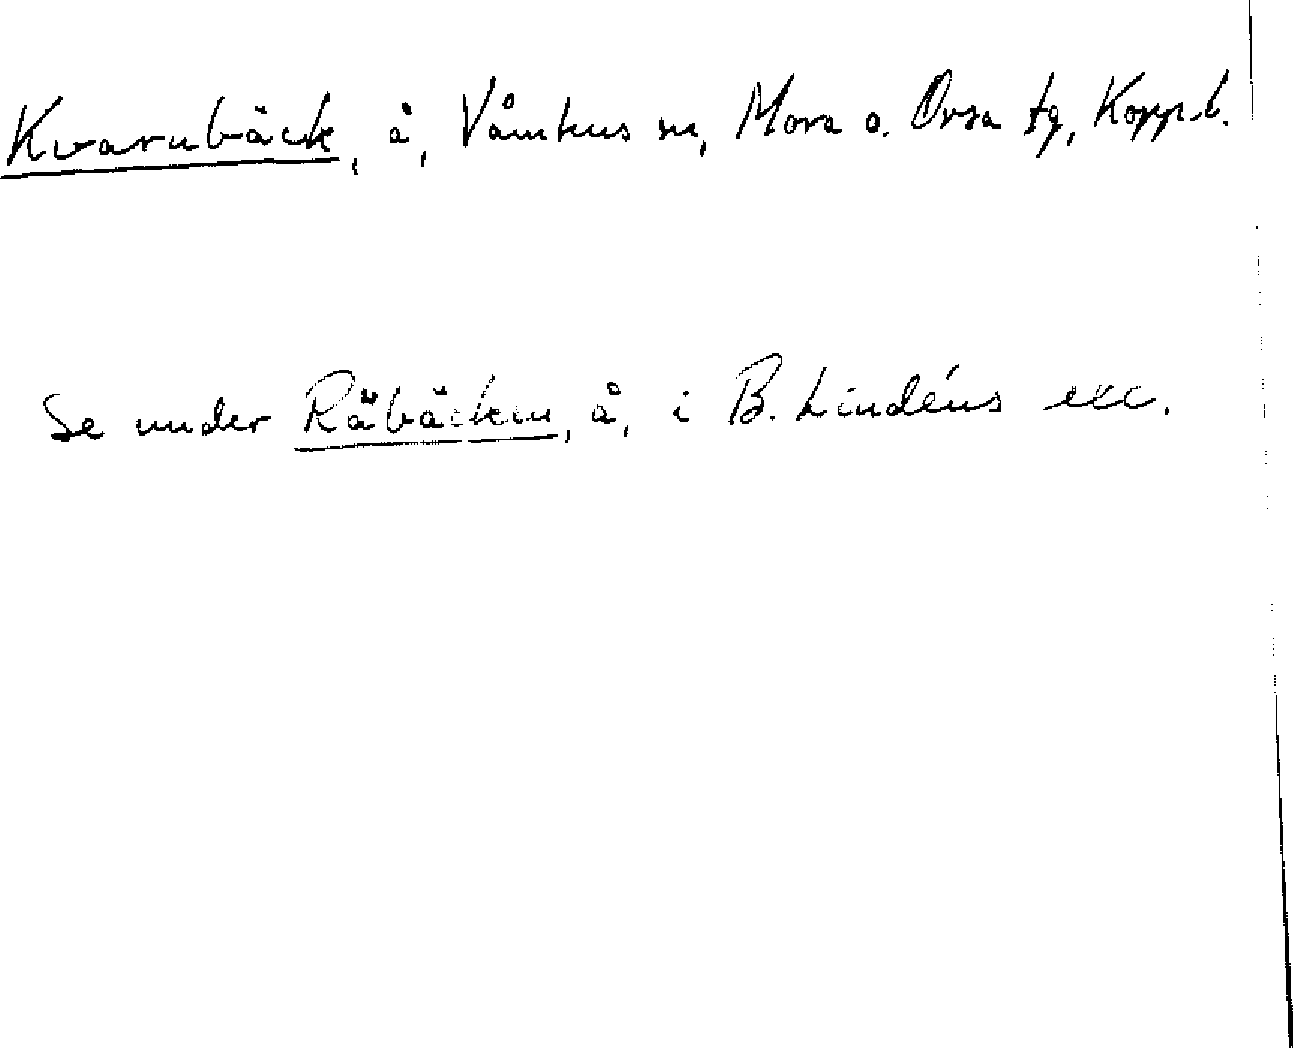 Kvarnbäck, å, Våmhus sn, Mora o. Orsa tg, Kopp.b.
Se under Råbäcken, å, i B. Lindéns exc.